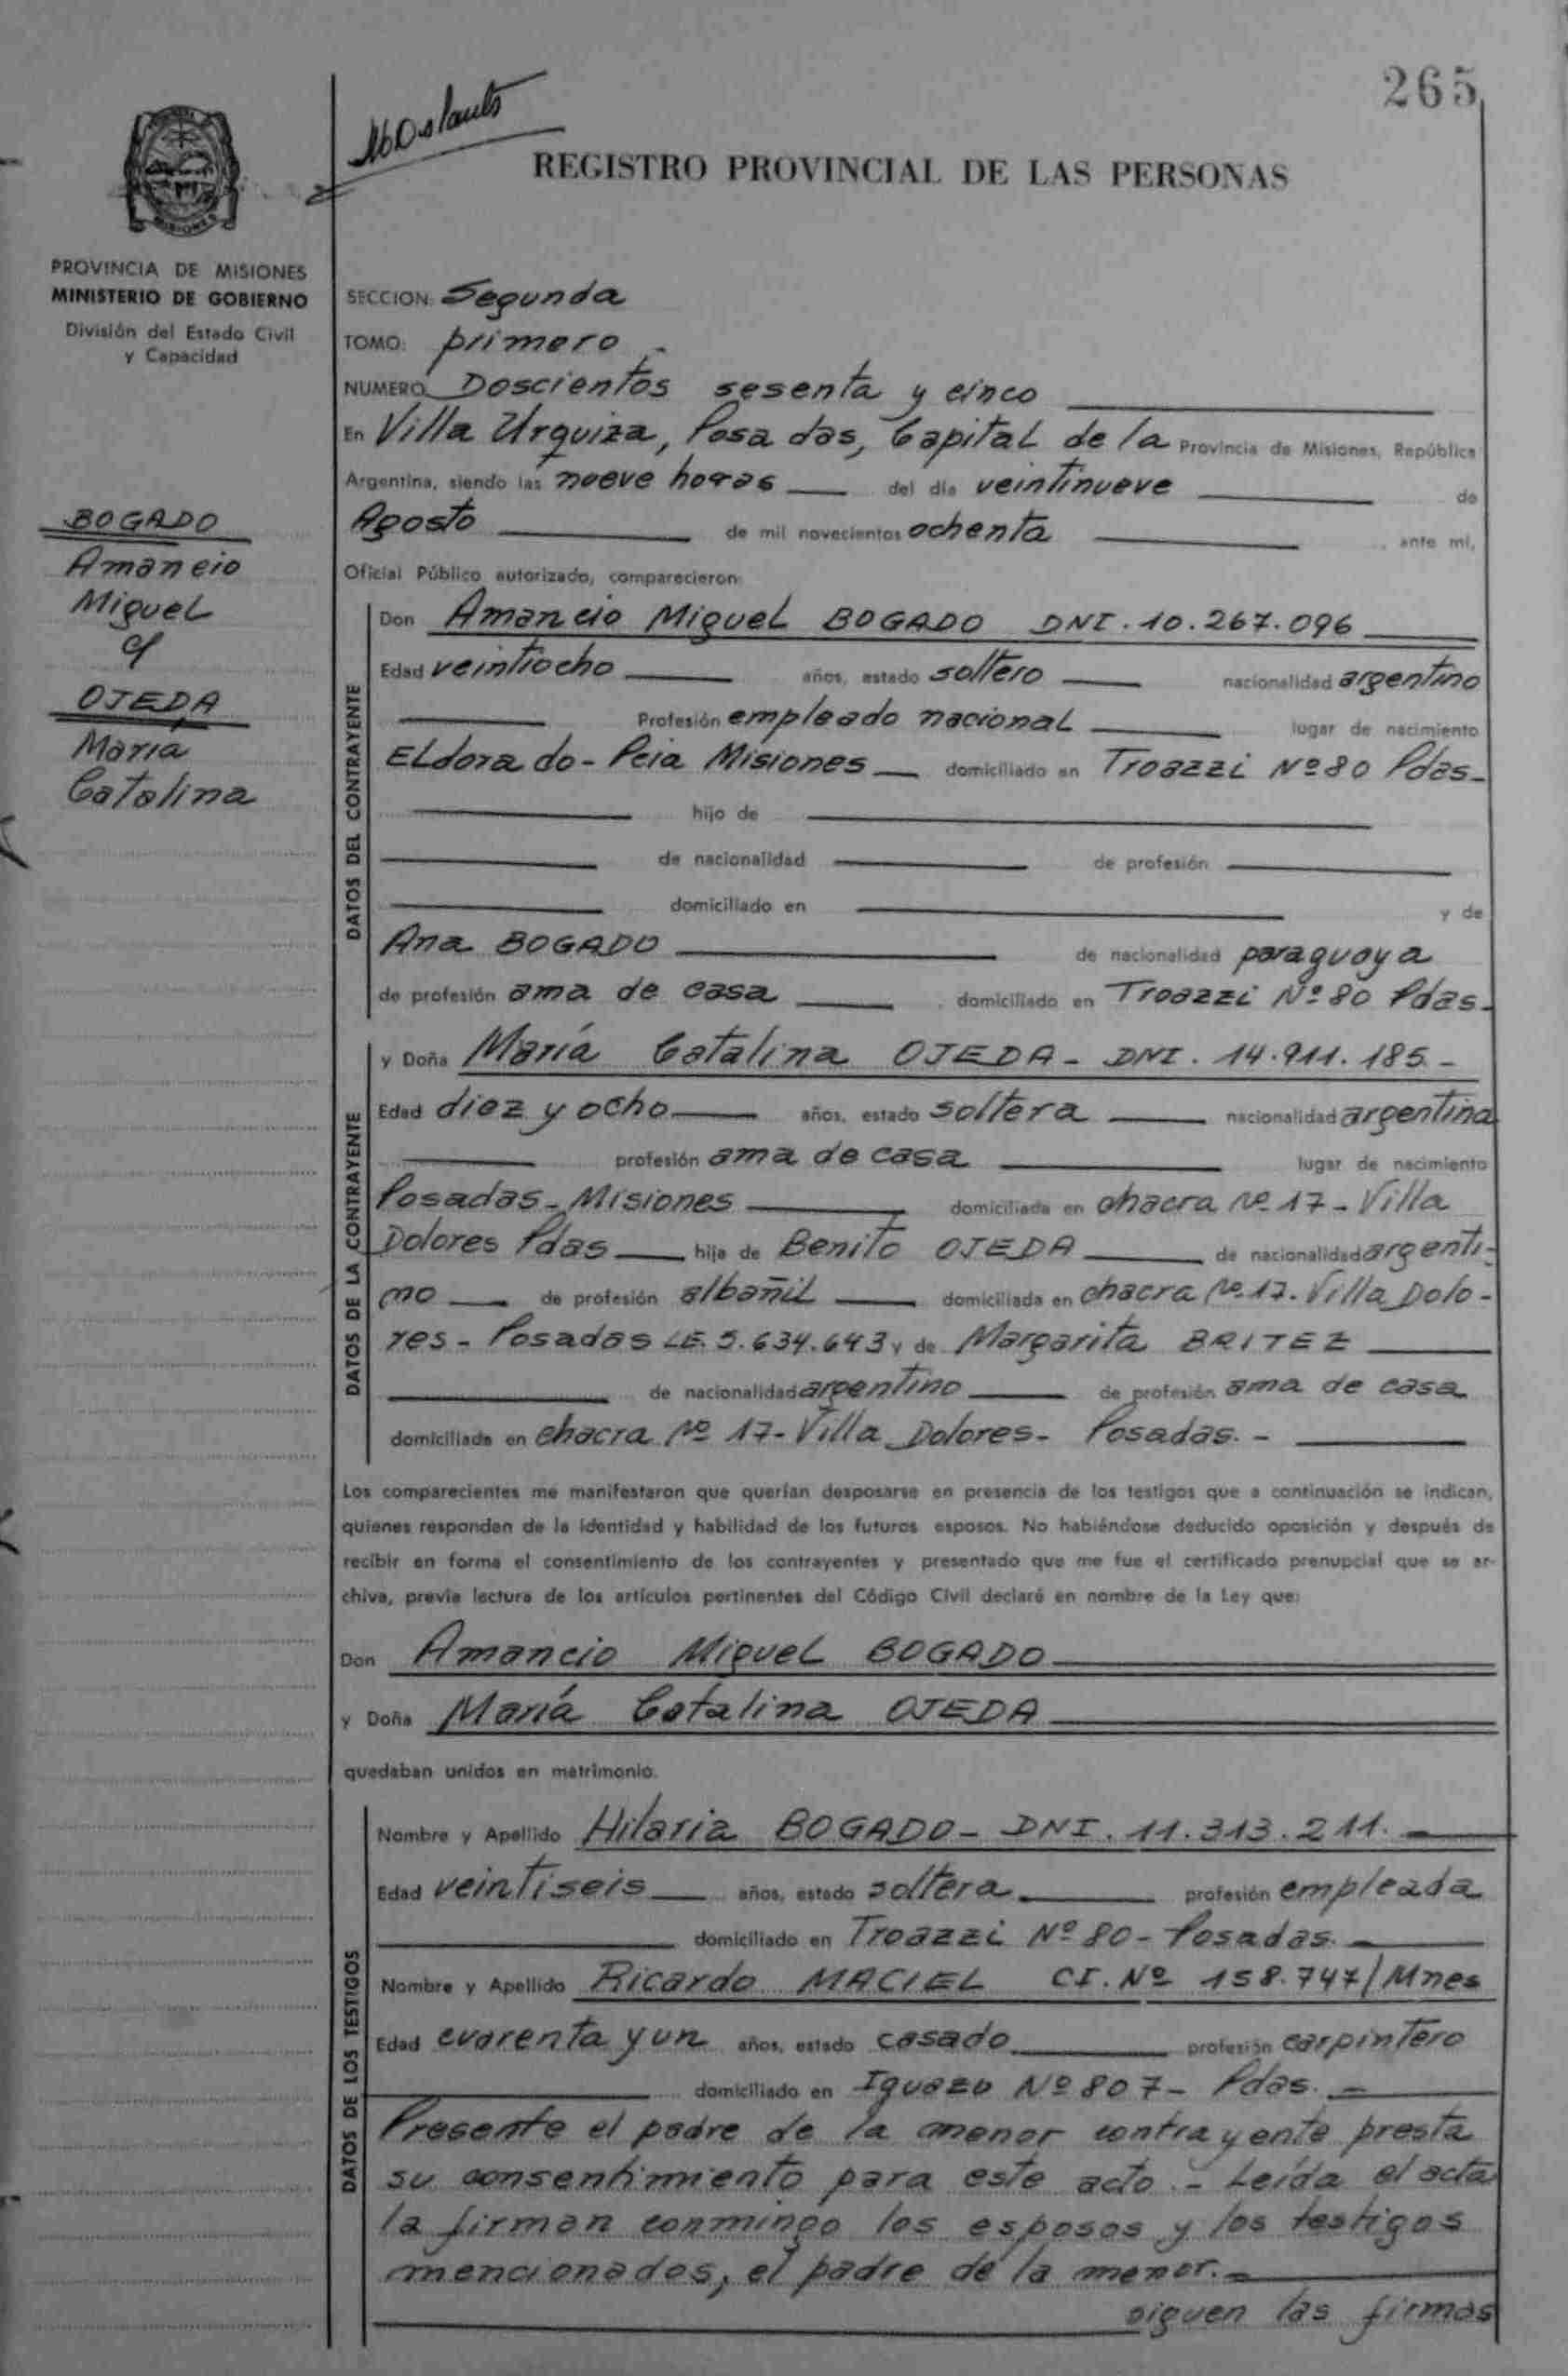 265
REGISTRO PROVINCIAL DE LAS PERSONAS
MISIONES
PROVINCIA DE MISIONES
MINISTERIO DE GOBIERNO
División del Estado Civil
y Capacidad
BOGADO
Amancio
Miguel
c/
OJEDA
María
Catalina
SECCION: Segunda
TOMO: primero -
NUMERO Doscientos sesenta y cinco
En Villa Urquiza, Posadas, Capital de la Provincia de Misiones, República
Argentina, siendo las nueve horas del día veintinueve de
Agosto de mil novecientos ochenta, ante mí,
Oficial Público autorizado, comparecieron:
DATOS DEL CONTRAYENTE
Don Amancio Miguel BOGADO DNI. 10.267.096
Edad veintiocho años, estado soltero nacionalidad argentino
Profesión empleado nacional lugar de nacimiento
ELdorado - Pcia Misiones domiciliado en Troazzi Nº 80 Pdas-
hijo de
de nacionalidad de profesión
domiciliado en y de
Ana BOGADO de nacionalidad paraguaya
de profesión ama de casa domiciliado en Troazzi Nº 80 Pdas-
DATOS DE LA CONTRAYENTE
y Doña María Catalina OJEDA - DNI. 14.911.185-
Edad diez y ocho años, estado soltera nacionalidad argentina
profesión ama de casa lugar de nacimiento
Posadas - Misiones domiciliada en chacra Nº 17 - Villa
Dolores Pdas hija de Benito OJEDA de nacionalidad argenti-
no de profesión albañil domiciliada en chacra Nº 17. Villa Dolo-
res - Posadas LE. 5.634.643 y de Margarita BRITEZ
de nacionalidad argentino de profesión ama de casa
domiciliada en chacra Nº 17 - Villa Dolores - Posadas. -
Los comparecientes me manifestaron que querían desposarse en presencia de los testigos que a continuación se indican,
quienes responden de la identidad y habilidad de los futuros esposos. No habiéndose deducido oposición y después de
recibir en forma el consentimiento de los contrayentes y presentado que me fue el certificado prenupcial que se ar-
chiva, previa lectura de los artículos pertinentes del Código Civil declaré en nombre de la Ley que:
Don Amancio Miguel BOGADO
y Doña María Catalina OJEDA
quedaban unidos en matrimonio.
DATOS DE LOS TESTIGOS
Nombre y Apellido Hilaria BOGADO - DNI. 11.313.211. -
Edad veintiseis años, estado soltera profesión empleada
domiciliado en Troazzi Nº 80 - Posadas. -
Nombre y Apellido Ricardo MACIEL CI. Nº 158.747/Mnes
Edad cuarenta y un años, estado casado profesión carpintero
domiciliado en Iguazu Nº 807 - Pdas. -
Presente el padre de la menor contrayente presta
su consentimiento para este acto. - Leída el acta
la firman conmingo los esposos y los testigos
mencionados, el padre de la menor. -
siguen las firmas